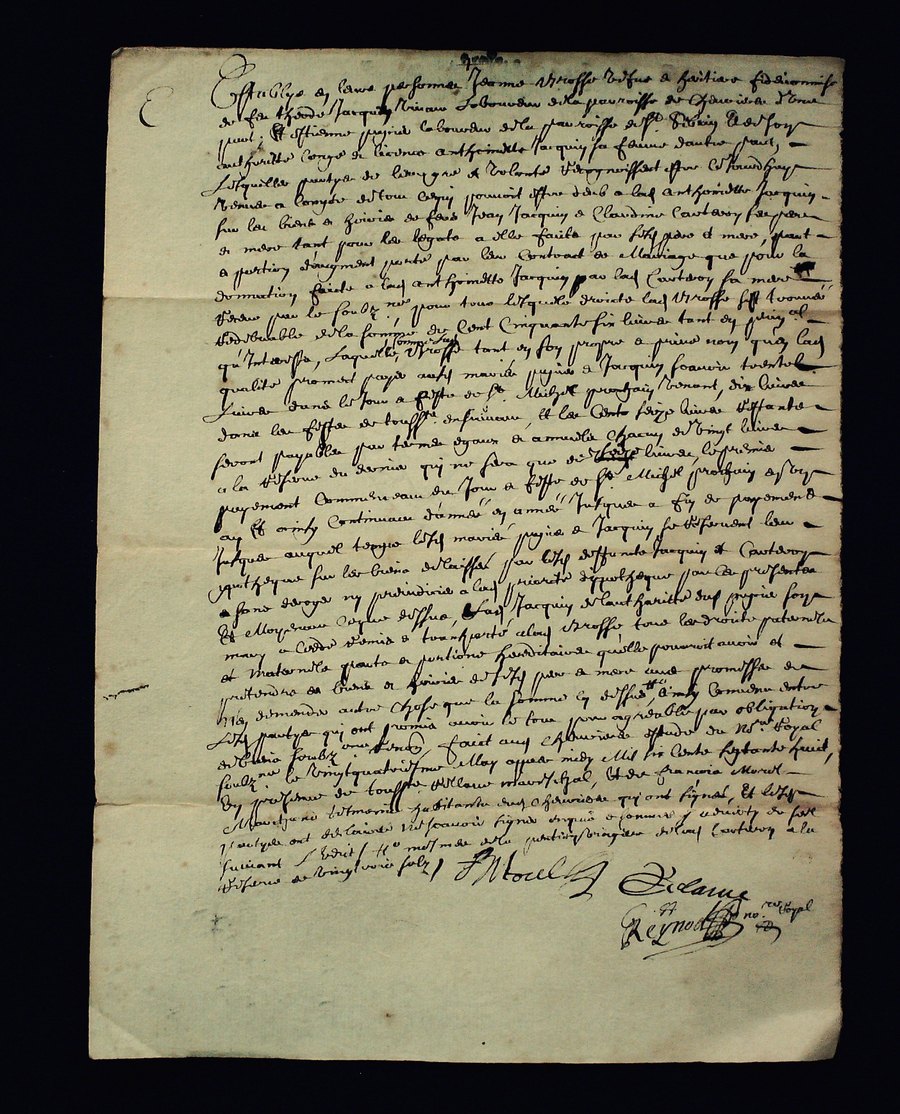 Establys en leurs personnes Jeanne Brosse vefve & heritiere fideicommisse
de feu Jacquin vivant Laboureur de la parroisse de Chevrieres d'une
part, Et Estienne pugin laboureur de la parroisse de St. & de son
authoritté congé & licence anthoinette Jacquin sa femme d'autre part,
Lesquelles partyes de leur gré & volonté recognoissent estre ce Jourdhuy
venues a compte de tout ce qui pouvoit estre deub a lad anthoinette Jacquin
sur les biens & hoirie de feus Jean Jacquin & Claudine Carteron ses pere
et mere tant pour les legats a elle faits par sesd pere et mere, part
& portion d'augment porté par leur Contract de Mariage que pour la
donnation faite a lad anthoinette Jacquin par lad Carteron sa mere
receue par le soubz.né pour tous lesquels droits lad Brosse s'est trouvée
redebvable de la somme de Cent Cinquante six livres tant en prin.al
qu'Interests, Laquelle somme lad Brosse tant en son propre & privé nom qu'en lad
qualité promect payer ausd mariés pugin & Jacquin scavoir trente
Livres dans le Jour & feste de St. Michel prochain venant, dix livres
dans les festes de toussts. ensuivant, Et les Cents seize livres restants
seront payables par termes egaux & annuels chacun de vingt livres
a la reserve du dernier qui ne sera que de seize livres, le premier
payement Commenceant du Jour & feste de St. Michel prochain en un
an Et ainsy Continuant d'année en année Jusques a fin de payement
Jusques auquel temps lesd mariés pugin & Jacquin se reservent leur
ypotheque sur les biens delaissés par lesd deffunts Jacquin et Carteron
sans deroger ny prejudicier a lad priorité d'ypotheque par ces presentes
Et Moyenant ce que dessus, Lad Jacquin de l'authoritté dud pugin son
mary a Cedé remis & transporté a lad Brosse tous les droits paternels
et Maternels parts & portions hereditaires qu'elle pourroit avoir et
pretendre es biens & hoirie de sesd pere & mere avec promesse de
n'en demander autre chose que la somme cy dessus, Ainsy Convenu entre
Lesd partyes qui ont promis avoir le tout pour agreable par obligation
de biens soubz Faict aud Chevrieres estude du No.re Royal
soubz.né le vingtquatriesme May apres midy Mil six Cents septante huit,
En presence de marechal, Et de francois Morel
Marchand tesmoins habitants dud Chevrieres qui ont signés, Et lesd
partyes ont declairés ne scavoir signer enquis & sommés
suivant L'edict, de lad Carteron a la
reserve de vingt trois solz,
F Morel
Delarue
Reynod no.re Royal